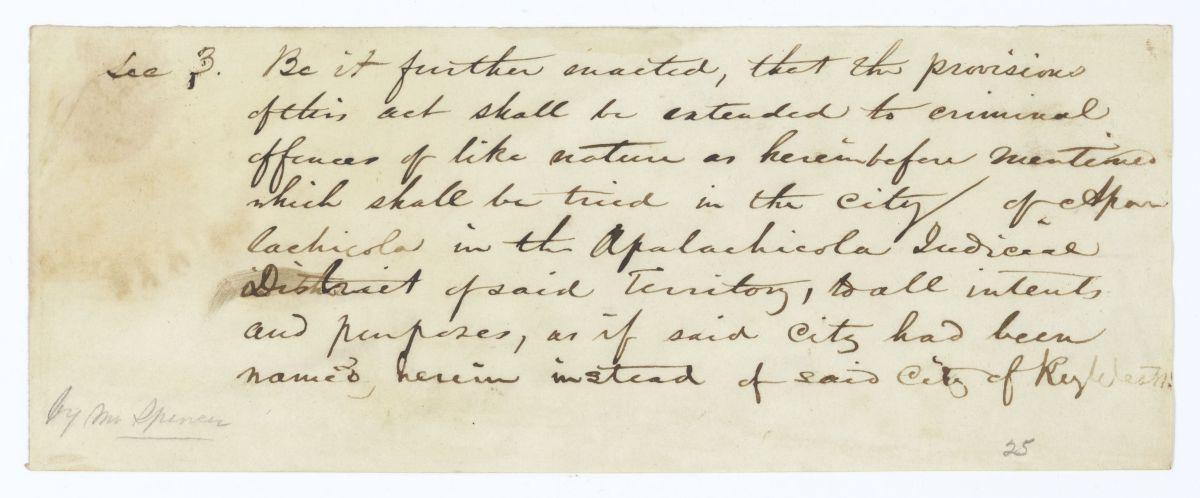 Sec 3. Be it further enacted, that the provisions
of this act shall be extended to criminal
offences of like nature as hereinbefore mentioned
which shall be tried in the city / of Apa
lachicola in the Apalachicola Judicial
District of said Territory, to all intents
and purposes, as if said City had been
named, herein instead of said City of Key West.
by Mr Spencer
25